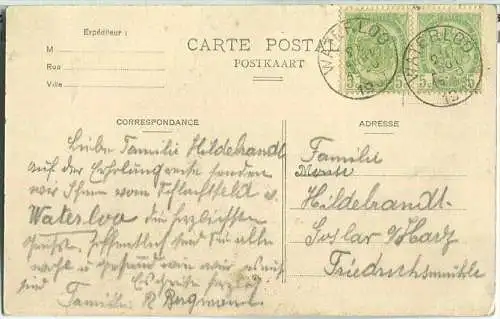 Expéditeur :
M
Rue
Ville
CARTE POSTALE
POSTKAART
WATERLOO
WATERLOO
CORRESPONDANCE
Liebe Familie Hildebrandt
auf der Erholungsreise senden
wir Ihnen vom Schlachtfeld v.
Waterloo die herzlichsten
Grüße, hoffentlich sind Sie alle
wohl u gesund wie wir es auch
sind
Familie R
ADRESSE
Familie
Hildebrandt
Goslar a/Harz
Friedrichsmühle